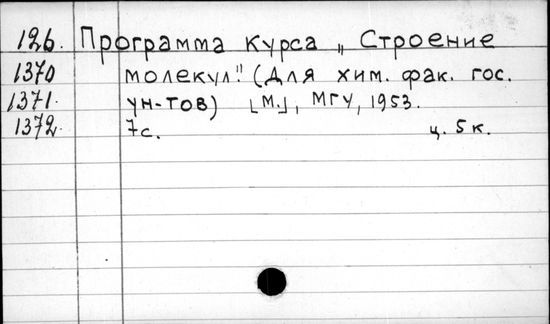 126. Программа курса „Строение
1370 молекул." (Для хим. фак. гос.
1371. ун-тов) [М.], МГУ, 1953.
1372. 7с. ц. 5 к.